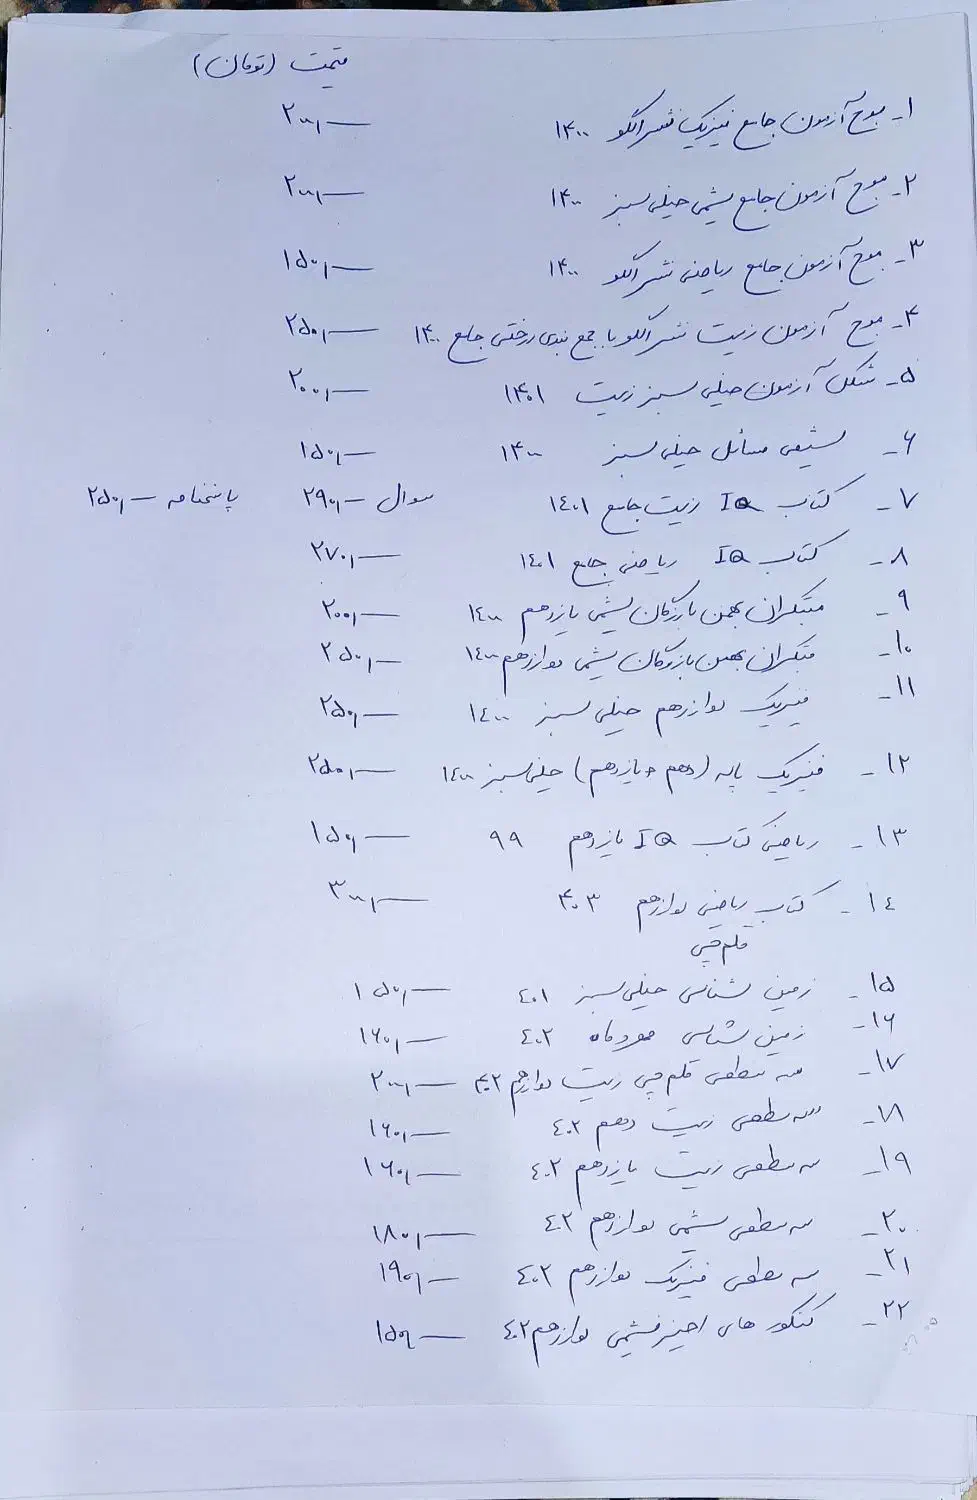 قیمت (تومان)
۱- موج آزمون جامع فیزیک نشر الگو ۱۴۰۰ ۲۰۰/—
۲- موج آزمون جامع شیمی خیلی سبز ۱۴۰۰ ۲۰۰/—
۳- موج آزمون جامع ریاضی نشر الگو ۱۴۰۰ ۱۵۰/—
۴- موج آزمون زیست نشر الگو با جمع بندی درختی جامع ۱۴۰۰ ۲۵۰/—
۵- شکل آزمون خیلی سبز زیست ۱۴۰۱ ۲۰۰/—
۶- شیمی مسائل خیلی سبز ۱۴۰۰ ۱۵۰/—
۷- کتاب IQ زیست جامع ۱۴۰۱ سوال —/۲۹۰ پاسخنامه —/۲۵۰
۸- کتاب IQ ریاضی جامع ۱۴۰۱ ۲۷۰/—
۹- مبتکران بهمن بازرگان شیمی یازدهم ۱۴۰۰ ۲۰۰/—
۱۰- مبتکران بهمن بازرگان شیمی دوازدهم ۱۴۰۰ ۲۵۰/—
۱۱- فیزیک دوازدهم خیلی سبز ۱۴۰۰ ۲۵۰/—
۱۲- فیزیک پایه (دهم و یازدهم) خیلی سبز ۱۴۰۰ ۲۵۰/—
۱۳- ریاضی کتاب IQ یازدهم ۹۹ ۱۵۰/—
۱۴- کتاب ریاضی دوازدهم ۴۰۳ ۳۰۰/—
قلم چی
۱۵- زمین شناسی خیلی سبز ۴۰۱ ۱۵۰/—
۱۶- زمین شناسی مهروماه ۴۰۲ ۱۶۰/—
۱۷- سه سطحی قلم چی زیست دوازدهم ۴۰۲ ۲۰۰/—
۱۸- سه سطحی زیست دهم ۴۰۲ ۱۶۰/—
۱۹- سه سطحی زیست یازدهم ۴۰۲ ۱۶۰/—
۲۰- سه سطحی شیمی دوازدهم ۴۰۲ ۱۸۰/—
۲۱- سه سطحی فیزیک دوازدهم ۴۰۲ ۱۹۰/—
۲۲- کنکور های اخیر شیمی دوازدهم ۴۰۲ ۱۵۰/—